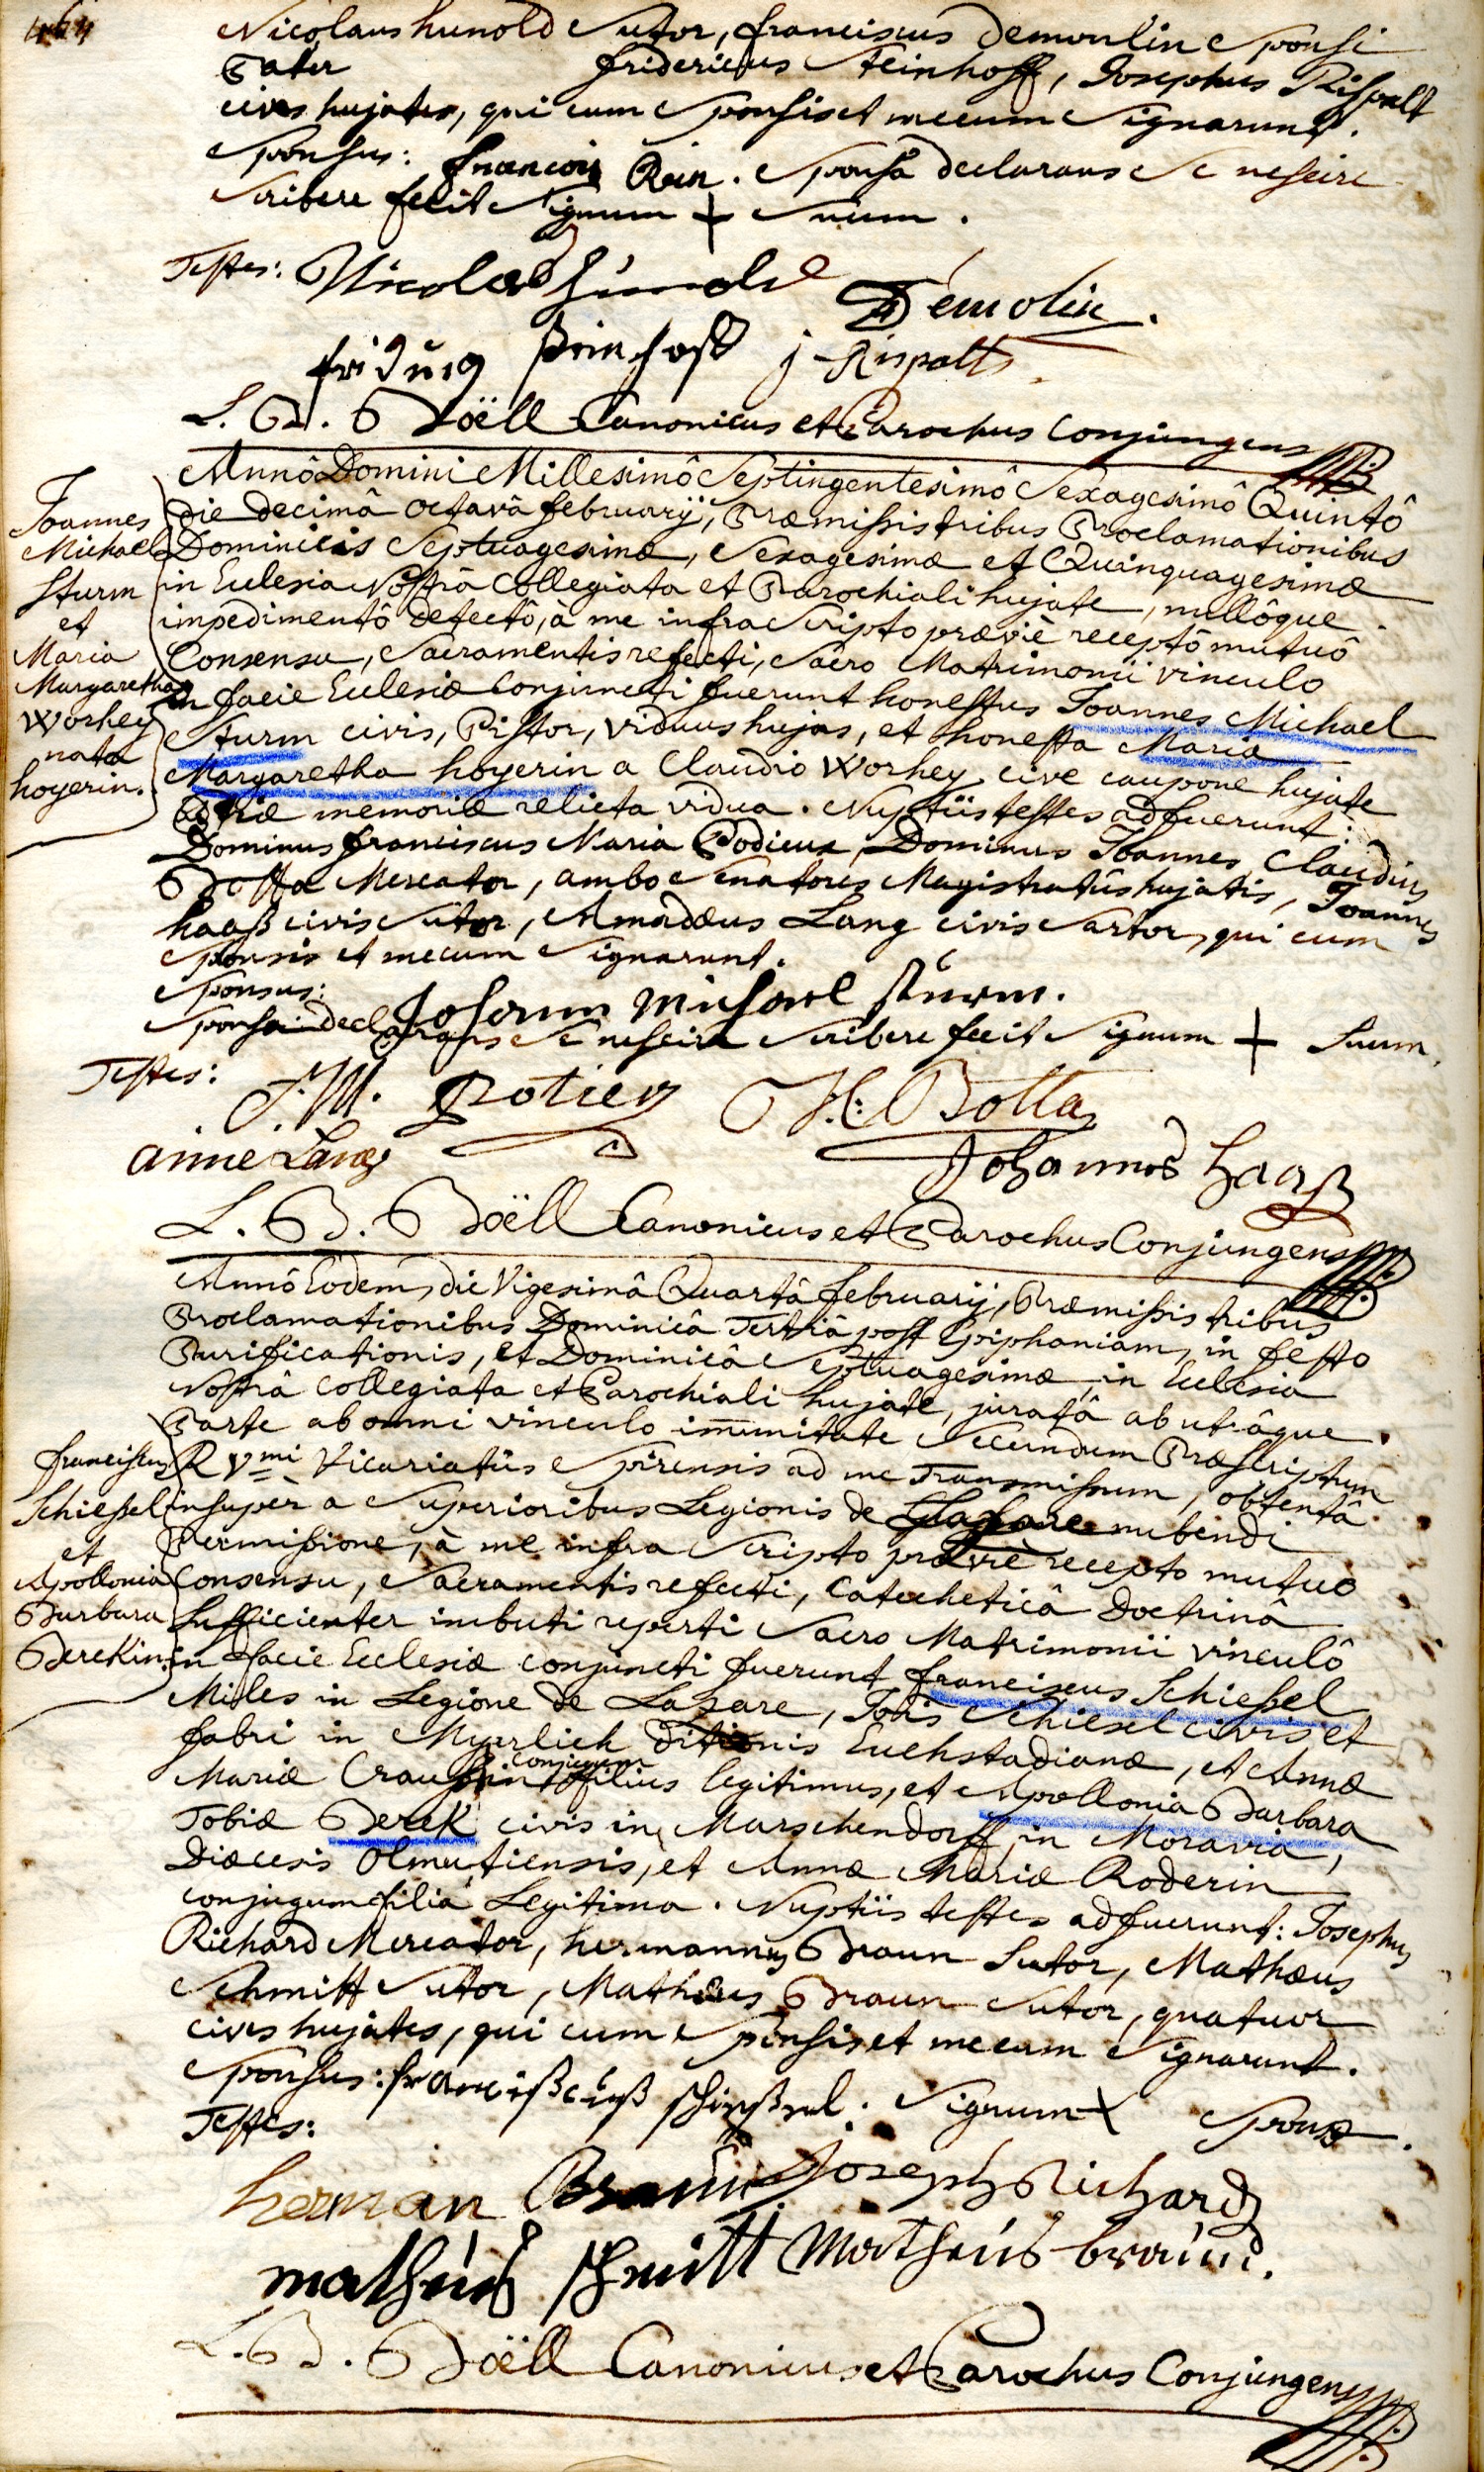 464
Nicolaus hunold Sutor, franciscus Demoulin Sponsi
Pater fridericus Steinhoff, Josephus Rispalt
cives hujates, qui cum Sponsis et mecum Signarunt.
Sponsus: francois Rein. Sponsa declarans Se nescire
Scribere fecit Signum + Suum.
Testes: Nicolas hunold
Demolin.
fridrig Steinhoff j Rispalt
L. B. Böell Canonicus et Parochus Conjungens
Annô Domini Millesimô Septingentesimô Sexagesimô Quintô
die decimâ octavâ februarÿ, Præmissis tribus Proclamationibus
Dominicis Septuagesimæ, Sexagesimæ et Quinquagesimæ
in Ecclesia Nostrâ Collegiata et Parochiali hujate, nullôque
impedimentô detectô, à me infra Scripto præviè receptô mutuô
Consensu, Sacramentis refecti, Sacro Matrimonii vinculo
in facie Ecclesiæ conjuncti fuerunt honestus Joannes Michael
Sturm civis, Pistor, viduus hujas, et honesta Maria
Margaretha hoyerin a Claudio Worhey cive caupone hujate
Piæ memoriæ relicta vidua. Nuptiis testes adfuerunt:
Dominus franciscus Maria Podieux, Dominus Joannes Claudius
Botta Mercator, ambo Senatores Magistratûs hujatis, Joannes
haaß civis Sutor, Amadæus Lang civis Sartor, qui cum
Sponsis et mecum Signarunt.
Joannes
Michael
Sturm
et
Maria
Margaretha
Worhey
nata
hoyerin.
Sponsus: Johann Michael Sturm.
Sponsa declarans Se nescire Scribere fecit Signum + Suum.
Testes: Potier J.C. Botta
Lang Johannes Haaß
L. B. Böell Canonicus et Parochus Conjungens
Annô Eodem, die Vigesimâ Quartâ februarij, Præmissis tribus
Proclamationibus Dominicâ Tertiâ post Epiphaniam, in festo
Purificationis, et Dominicâ Septuagesimæ in Ecclesia
Nostrâ Collegiata et Parochiali hujate, juratâ ab utrâque
Parte ab omni vinculo im̄unitate Secundum Præscriptum
Rvmi Vicariatûs Spirensis ad me Transmissum, obtentâ
insuper a Superioribus Legionis de nubendi
Permissione, à me infra Scripto præviè recepto mutuo
Consensu, Sacramentis refecti, Catechetica Doctrinâ
Sufficienter imbuti reperti Sacro Matrimonii vinculô
in facie Ecclesiæ conjuncti fuerunt franciscus Schiessel
Miles in Legione de Lasare, Schiesel civis et
fabri in Myrlich ditionis Euchstadianæ, et Annæ
Mariæ conjugum filius legitimus, et Apollonia Barbara
Tobiæ Berek civis in Marschendorff in Moravia,
Diæcesis Olmutiensis, et Annæ Mariæ Roderin
conjugum filia Legitima. Nuptiis testes adfuerunt: Josephus
Richard Mercator, hermannus Braun Sutor, Mathæus
Schmitt Sutor, Mathæus Braun Sutor, quatuor
cives hujates, qui cum Sponsis et mecum Signarunt.
franciscus
Schiessel
et
Apollonia
Barbara
Berekin.
Sponsus: francißcuß schießel. Signum + Sponsæ.
Testes:
herman Braun Joseph Richard
matheus schmitt Matheus braun.
L. B. Böell Canonicus et Parochus Conjungens